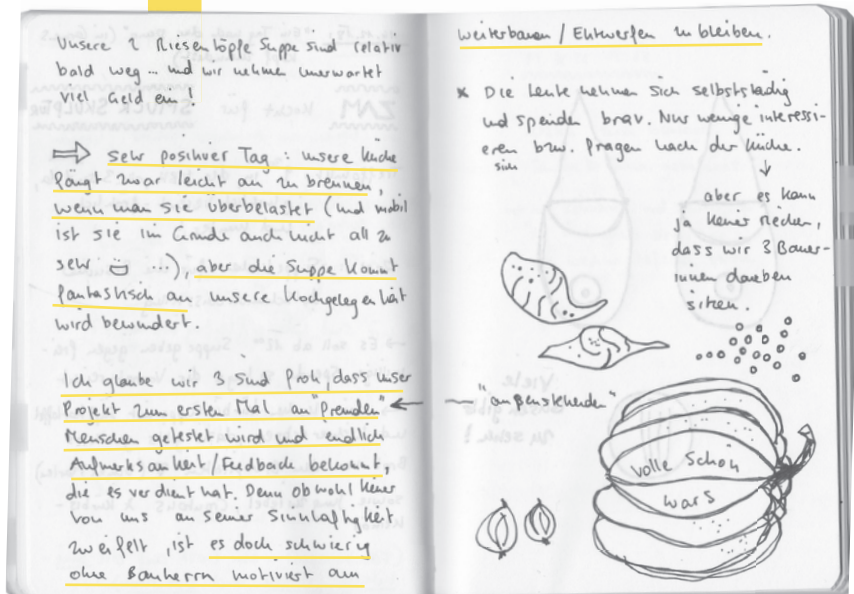 Unsere 2 Riesentöpfe Suppe sind relativ
bald weg ... und wir nehmen unerwartet
viel Geld ein!
⇒ sehr positiver Tag: unsere Küche
fängt zwar leicht an zu brennen,
wenn man sie überbelastet (und mobil
ist sie im Grunde auch nicht all zu
sehr ...), aber die Suppe kommt
fantastisch an unsere Kochgelegenheit
wird bewundert.
Ich glaube wir 3 sind froh, dass unser
Projekt zum ersten Mal an "fremden"
Menschen getestet wird und endlich
Aufmerksamkeit/Feedback bekommt,
die es verdient hat. Denn obwohl keiner
von uns an seiner Sinnhaftigkeit
zweifelt, ist es doch schwierig
ohne Bauherrn motiviert am
weiterbauen / Entwerfen zu bleiben.
* Die Leute nehmen sich selbstständig
und spenden brav. Nur wenige interessi-
eren bzw. fragen nach der Küche.
sich
↓
aber es kann
ja keiner riechen,
dass wir 3 Bauer-
innen daneben
sitzen.
← "außenstehenden"
volle Schön
wars
ZAM
kocht für